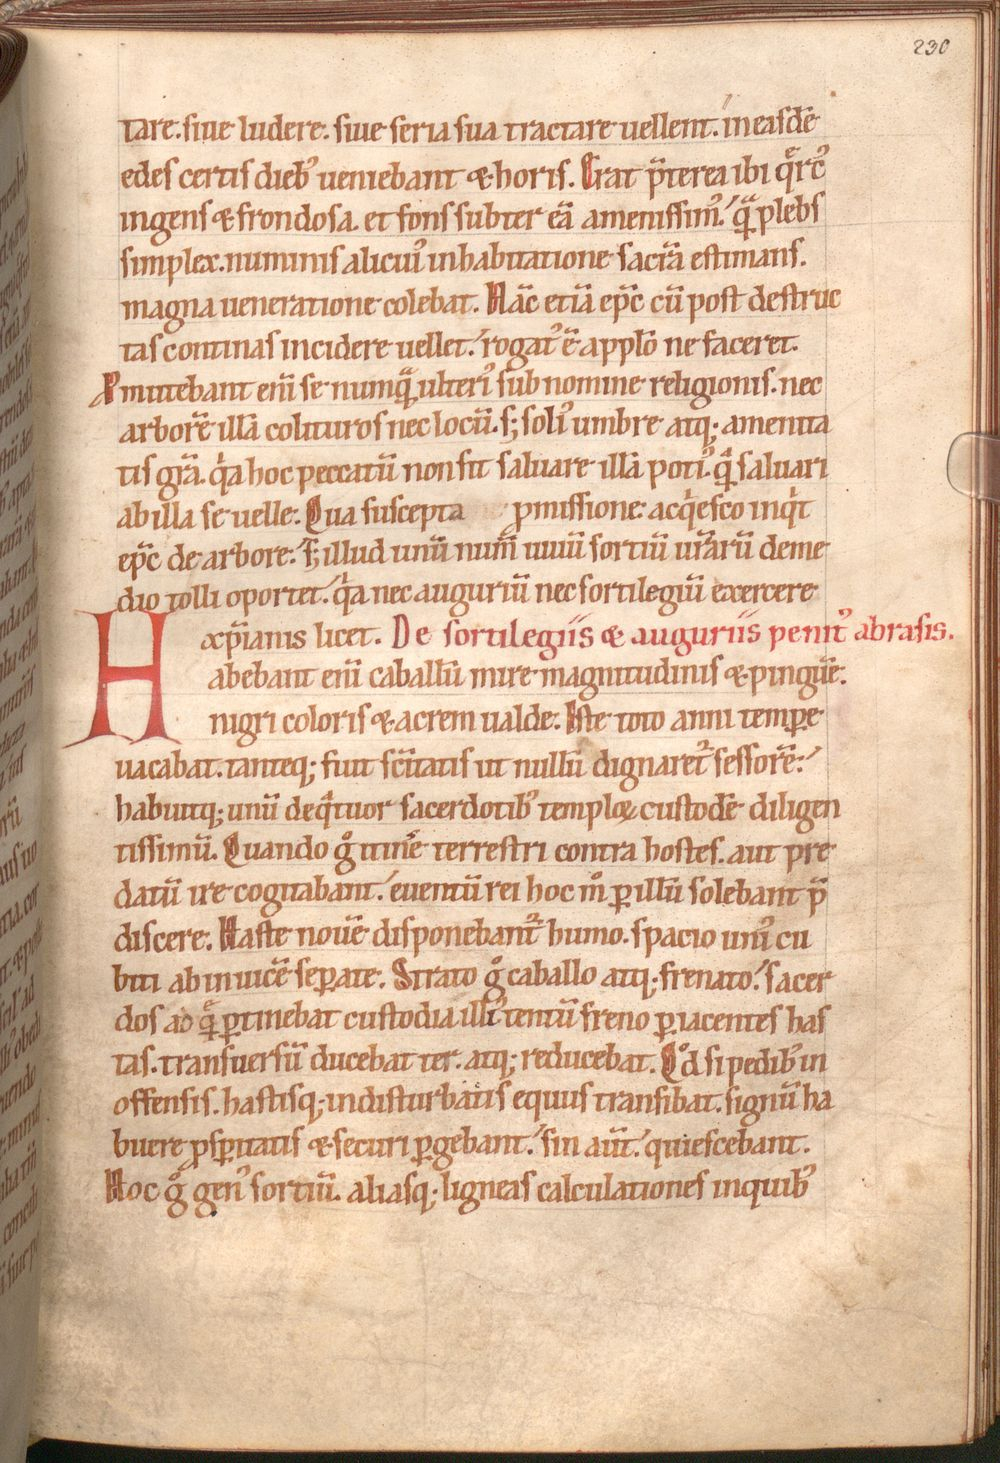 230
tare. siue ludere. siue seria sua tractare uellent. in easdē
edes certis dieb᾽ ueniebant & horis. Erat p̄terea ibi qͣrc᾽
ingens & frondosa. et fons subter eā amenissim᾽. qᷓ plebs
simplex. numinis alicui᾽ inhabitatione sacrā estimans.
magna ueneratione colebat. Hāc etiā ep̄c cū post destruc
tas continas incidere uellet. rogat᾽ ē a pp̄lo ne faceret.
Pmittebant eni̅ se numqᷓ ulteri᾽ sub nomine religionis. nec
arborē illā colituros nec locū. s; soli᾽ umbre atq; amenita
tis grā. qͥa hoc peccatū non sit saluare illā poti᾽. qᷓ saluari
ab illa se uelle. Qua suscepta ꝓmissione. acqͥesco inqͥt
ep̄c de arbore. S; illud unū num̄ uiuū sortiū ur̄arū deme
dio tolli oportet. qͥa nec auguriū nec sortilegiū exercere
xp̄ianis licet. De sortilegiis & auguriis penit᾽ abrasis.
Habebant eni̅ caballū mire magnitudinis & pinguē.
nigri coloris & acrem ualde. Iste toto anni temꝑe
uacabat. tanteq; fuit sc̄itatis ut nullū dignaret᾽ sessorē.
habuitq; unū de qͣtuor sacerdotib᾽ temploꝝ custodē diligen
tissimū. Quando gͦ itinē terrestri contra hostes. aut pre
datū ire cogitabant. euentū rei hoc mͦ ꝑ illū solebant p̄
discere. Haste nouē disponebant᾽ humo. spacio uni᾽ cu
biti ab inuicē seꝑate. Strato gͦ caballo atq; frenato. sacer
dos ad qᷓ ꝑtinebat custodia illi᾽ tentū freno ꝑ iacentes has
tas. transuersū ducebat ter. atq; reducebat. Qͦd si pedib᾽ in
offensis. hastisq; indisturbatis equus transibat. signū ha
buere ꝓsꝑitatis & securi ꝑgebant. sin aūt. quiescebant.
Hoc gͦ gen᾽ sortiū. aliasq; ligneas calculationes in quib᾽